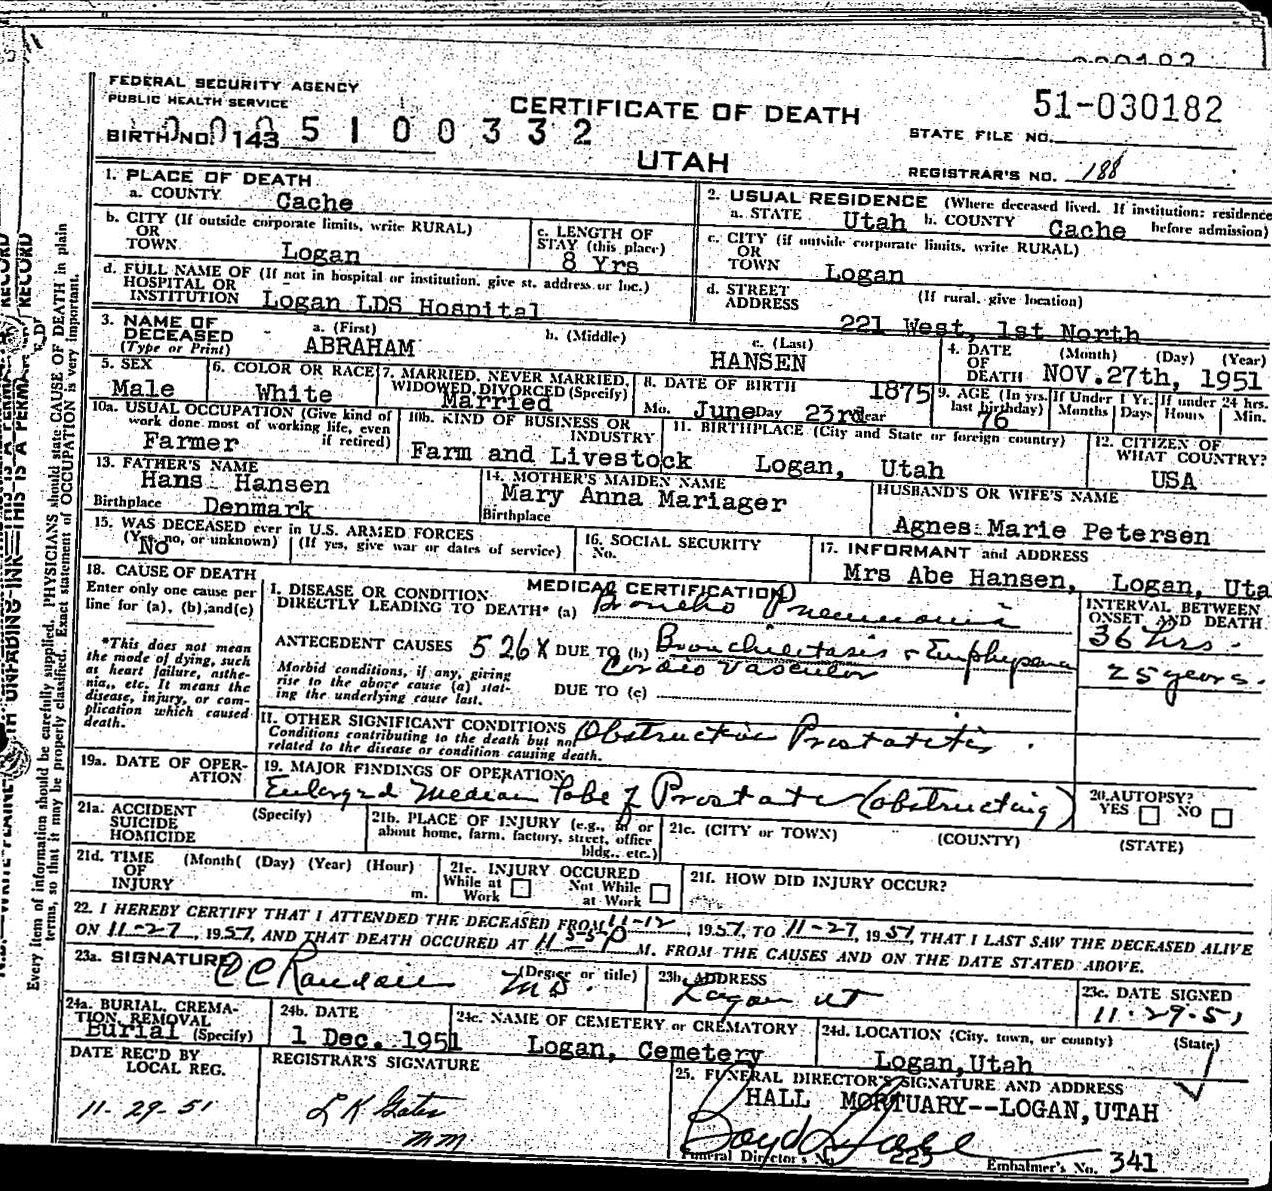 FEDERAL SECURITY AGENCY
PUBLIC HEALTH SERVICE
CERTIFICATE OF DEATH
51-030182
BIRTH NO. 143 005100332
STATE FILE NO.
UTAH
REGISTRAR'S NO. 188
1. PLACE OF DEATH
a. COUNTY Cache
2. USUAL RESIDENCE (Where deceased lived. If institution: residence before admission)
a. STATE Utah b. COUNTY Cache
b. CITY (If outside corporate limits, write RURAL)
OR
TOWN Logan
c. LENGTH OF
STAY (this place)
8 Yrs
c. CITY (if outside corporate limits, write RURAL)
OR
TOWN Logan
d. FULL NAME OF (If not in hospital or institution, give st. address or loc.)
HOSPITAL OR
INSTITUTION Logan LDS Hospital
d. STREET
ADDRESS
(If rural, give location)
221 West, 1st North
3. NAME OF
DECEASED
(Type or Print)
a. (First)
ABRAHAM
b. (Middle)
c. (Last)
HANSEN
4. DATE
OF
DEATH
(Month) (Day) (Year)
NOV.27th, 1951
5. SEX
Male
6. COLOR OR RACE
White
7. MARRIED, NEVER MARRIED,
WIDOWED, DIVORCED (Specify)
Married
8. DATE OF BIRTH 1875
Mo. June Day 23rd Year
9. AGE (In yrs.
last birthday)
76
If Under 1 Yr.
Months Days
If under 24 hrs.
Hours Min.
10a. USUAL OCCUPATION (Give kind of
work done most of working life, even
if retired)
Farmer
10b. KIND OF BUSINESS OR
INDUSTRY
Farm and Livestock
11. BIRTHPLACE (City and State or foreign country)
Logan, Utah
12. CITIZEN OF
WHAT COUNTRY?
USA
13. FATHER'S NAME
Hans Hansen
Birthplace Denmark
14. MOTHER'S MAIDEN NAME
Mary Anna Mariager
Birthplace
HUSBAND'S OR WIFE'S NAME
Agnes Marie Petersen
15. WAS DECEASED ever in U.S. ARMED FORCES
(Yes, no, or unknown) (If yes, give war or dates of service)
No
16. SOCIAL SECURITY
No.
17. INFORMANT and ADDRESS
Mrs Abe Hansen, Logan, Uta
18. CAUSE OF DEATH
Enter only one cause per
line for (a), (b), and (c)
*This does not mean
the mode of dying, such
as heart failure, asthe-
nia, etc. It means the
disease, injury, or com-
plication which caused
death.
MEDICAL CERTIFICATION
I. DISEASE OR CONDITION
DIRECTLY LEADING TO DEATH* (a) Broncho Pneumonia
INTERVAL BETWEEN
ONSET AND DEATH
36 hrs.
ANTECEDENT CAUSES 526X DUE TO (b) Bronchiectasis & Emphysema
Cardio Vascular
25 years.
Morbid conditions, if any, giving
rise to the above cause (a) stat-
ing the underlying cause last.
DUE TO (c)
II. OTHER SIGNIFICANT CONDITIONS
Conditions contributing to the death but not
related to the disease or condition causing death.
Obstructive Prostatitis.
19a. DATE OF OPER-
ATION
19. MAJOR FINDINGS OF OPERATION
Enlarged Median Lobe of Prostate (obstructing)
20. AUTOPSY?
YES NO
21a. ACCIDENT
SUICIDE
HOMICIDE
(Specify)
21b. PLACE OF INJURY (e.g., in or
about home, farm, factory, street, office
bldg., etc.)
21c. (CITY or TOWN) (COUNTY) (STATE)
21d. TIME
OF
INJURY
(Month( (Day) (Year) (Hour)
m.
21e. INJURY OCCURED
While at
Work
Not While
at Work
21f. HOW DID INJURY OCCUR?
22. I HEREBY CERTIFY THAT I ATTENDED THE DECEASED FROM 11-12, 1951, TO 11-27, 1951, THAT I LAST SAW THE DECEASED ALIVE
ON 11-27, 1951, AND THAT DEATH OCCURED AT 11 55 P M. FROM THE CAUSES AND ON THE DATE STATED ABOVE.
23a. SIGNATURE
C C Randall M.D.
(Degree or title)
23b. ADDRESS
Logan Ut
23c. DATE SIGNED
11-29-51
24a. BURIAL, CREMA-
TION, REMOVAL
Burial (Specify)
24b. DATE
1 Dec. 1951
24c. NAME OF CEMETERY or CREMATORY
Logan, Cemetery
24d. LOCATION (City, town, or county) (State)
Logan, Utah
DATE REC'D BY
LOCAL REG.
11-29-51
REGISTRAR'S SIGNATURE
L K Gates
mm
25. FUNERAL DIRECTOR'S SIGNATURE AND ADDRESS
HALL MORTUARY--LOGAN, UTAH
Funeral Director's No. 223
Embalmer's No. 341
Every item of information should be carefully supplied. PHYSICIANS should state CAUSE OF DEATH in plain
terms, so that it may be properly classified. Exact statement of OCCUPATION is very important.